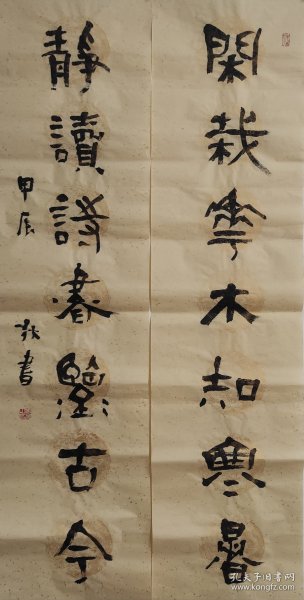 閑栽雩木知寒暑
靜讀詩書鑒古今
甲辰
書
孔夫子旧书网